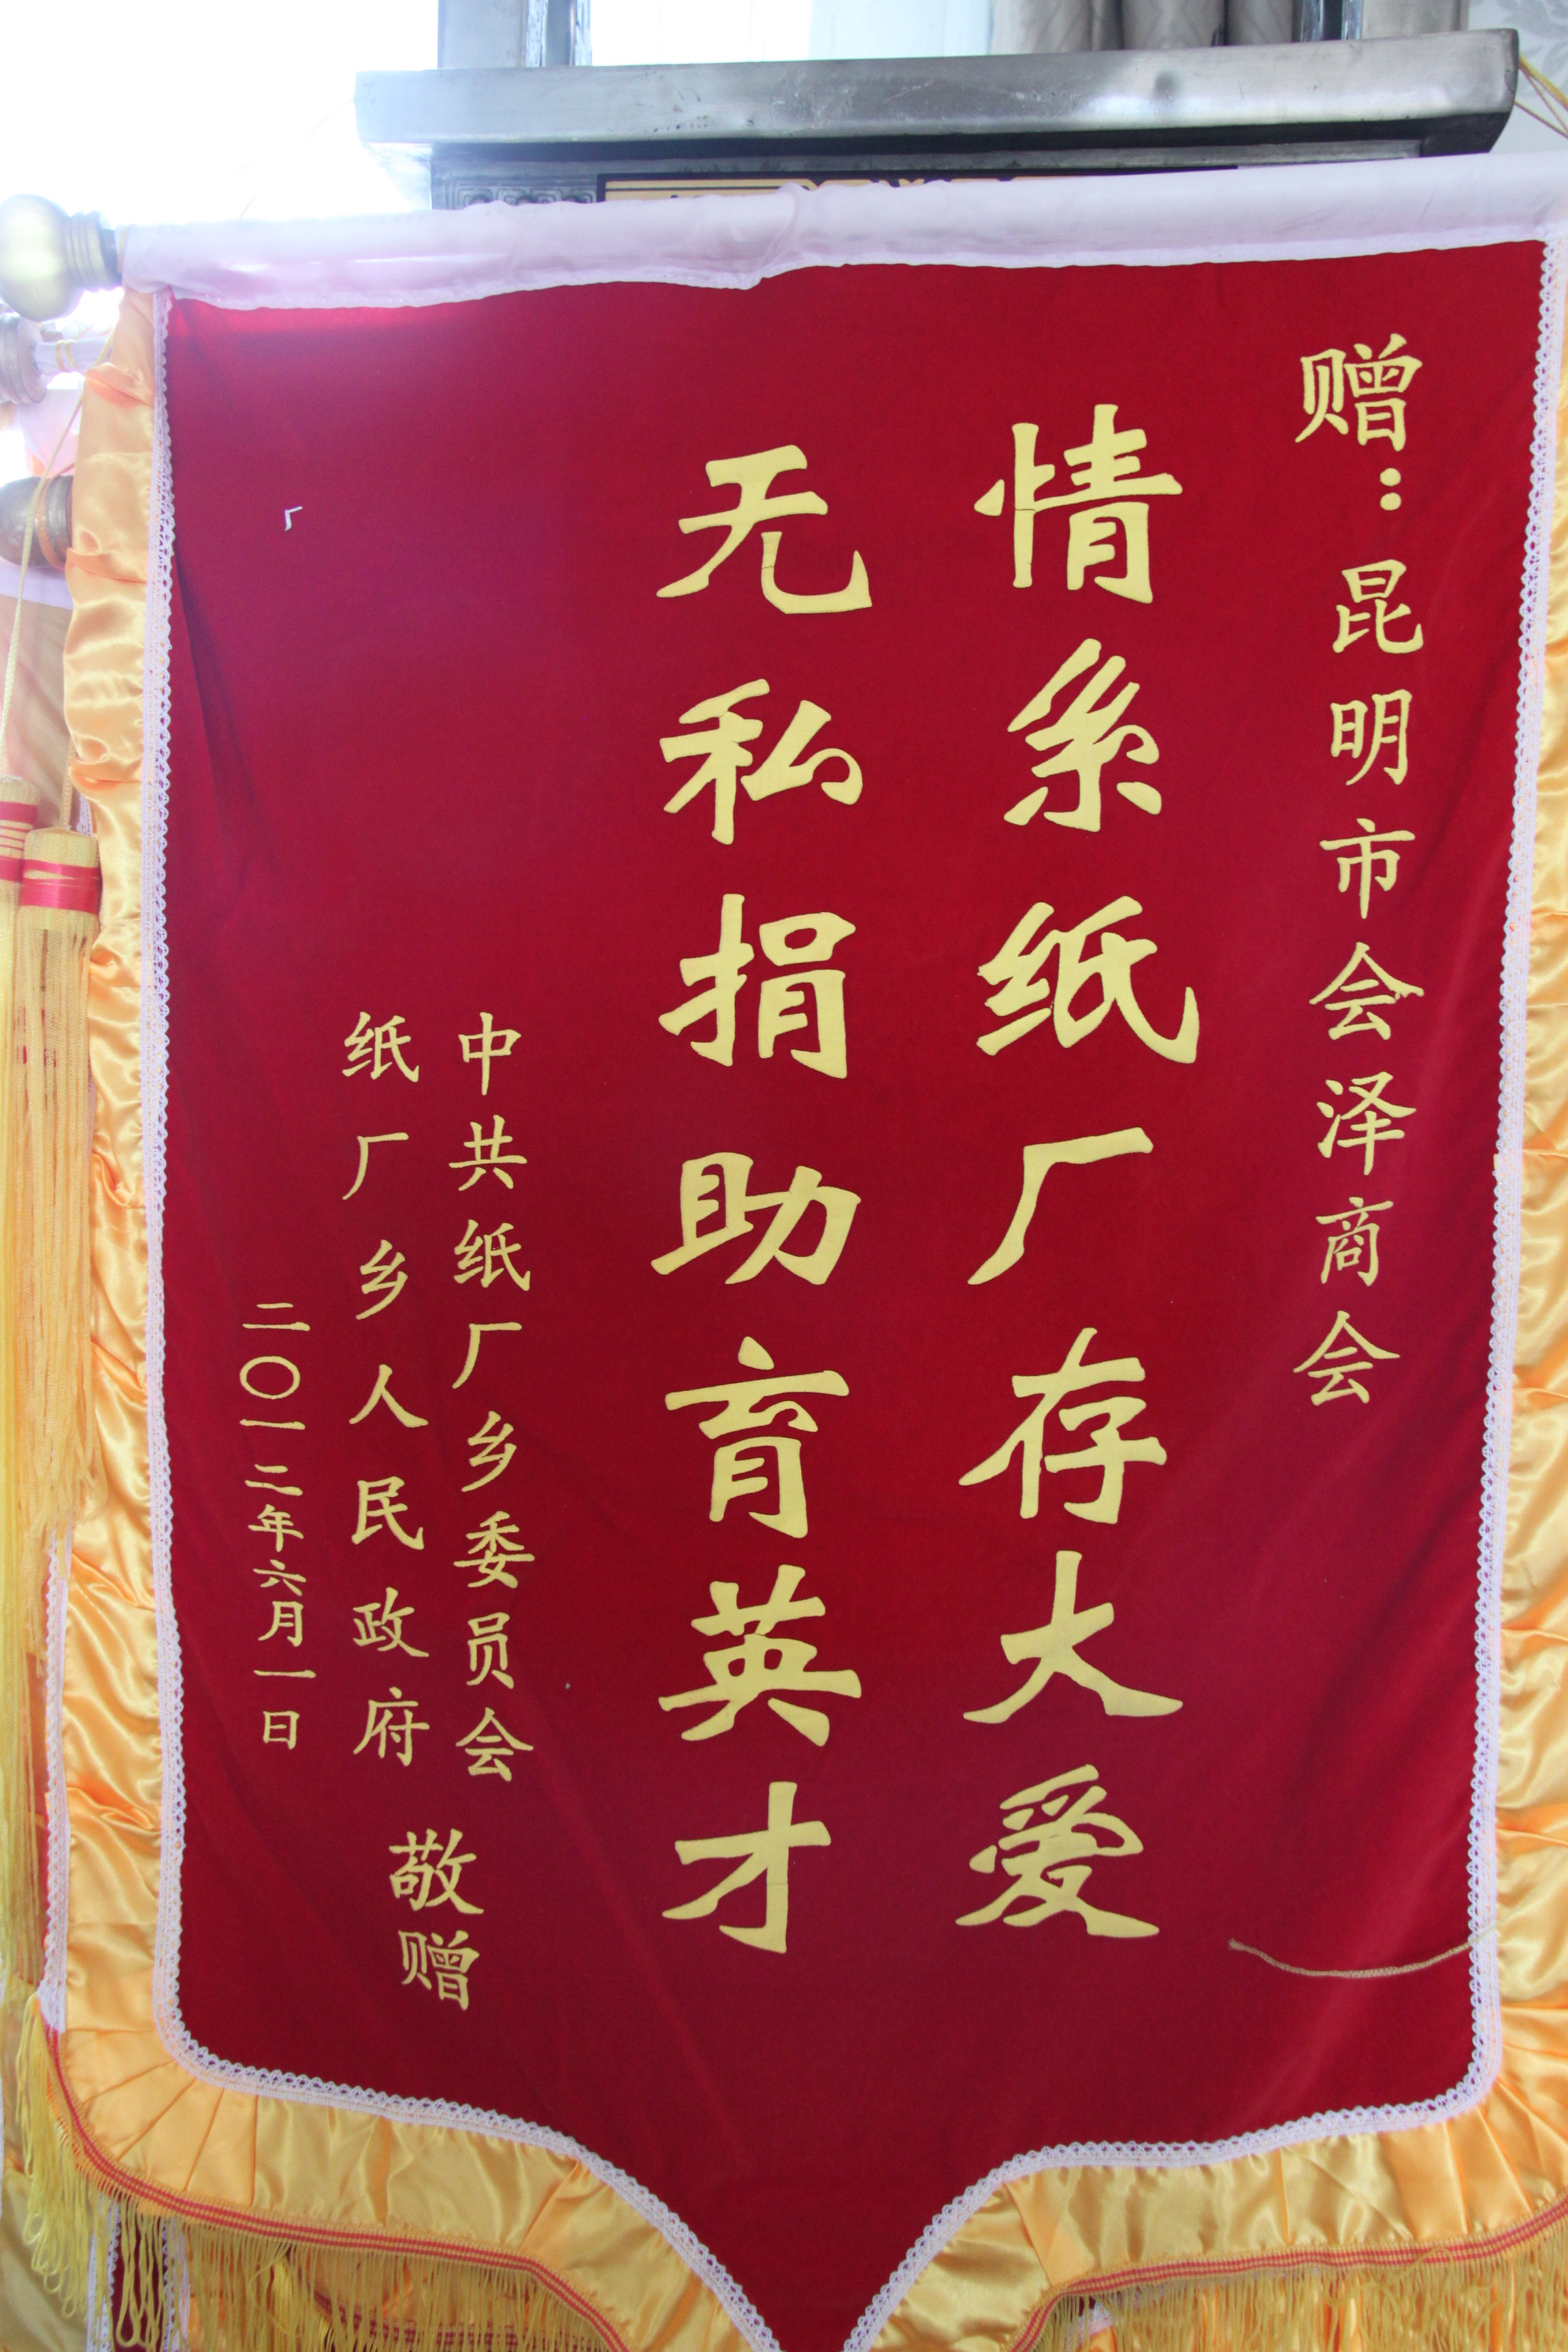 赠：昆明市会泽商会
情系纸厂存大爱
无私捐助育英才
中共纸厂乡委员会
纸厂乡人民政府
敬赠
二〇一二年六月一日